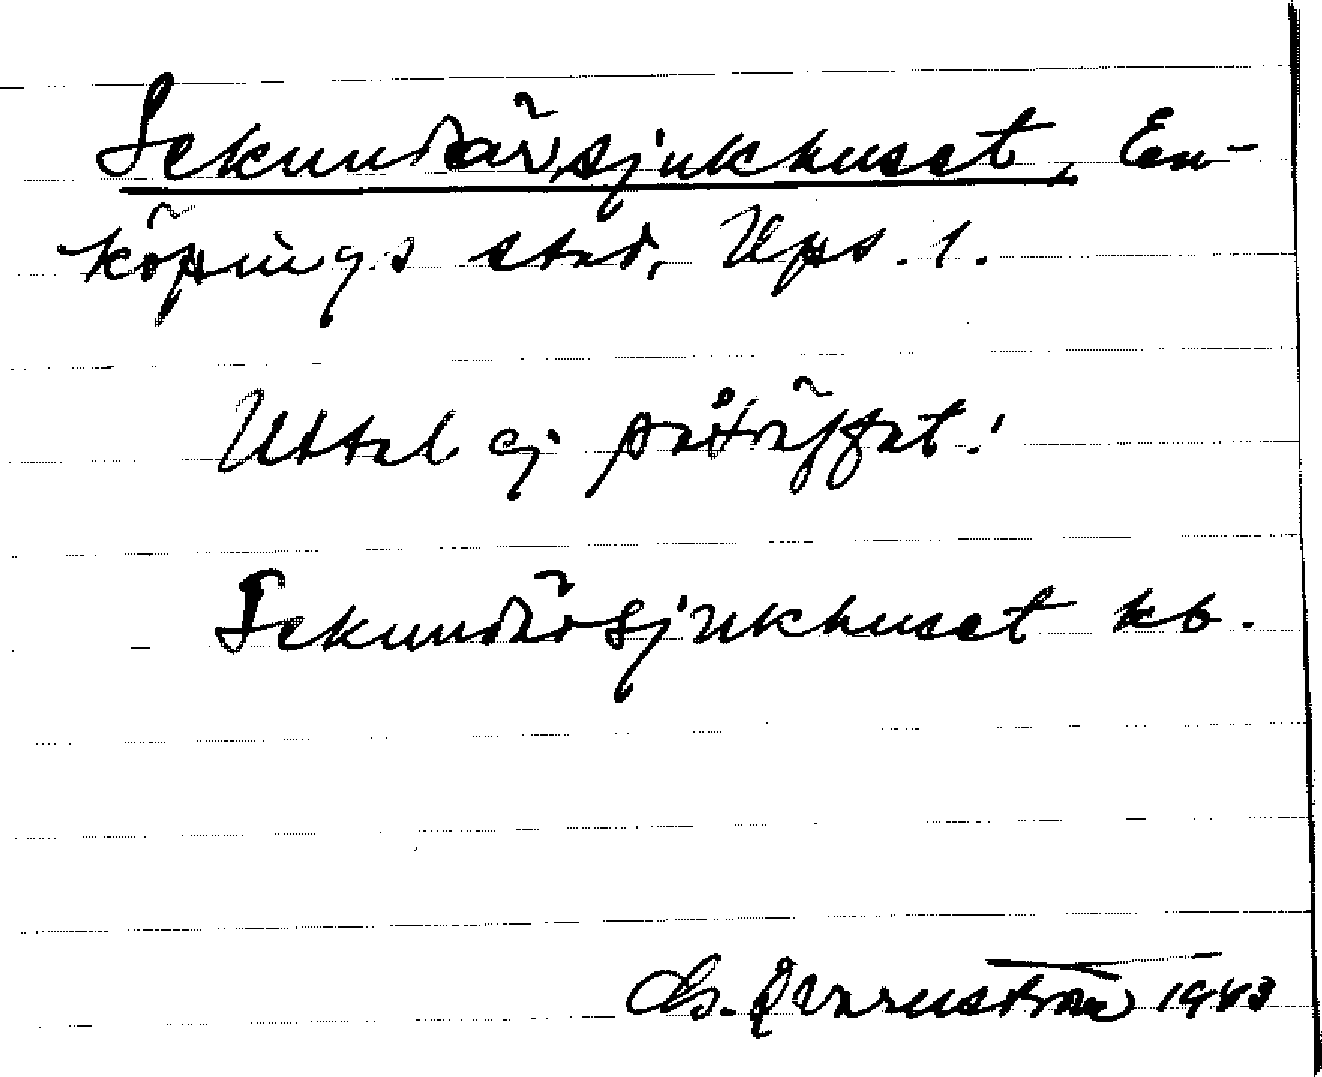 Sekundärsjukhuset, En-
köpings stad, Upps. l.
Uttal ej påträffat.
Sekundärsjukhuset kb.
1943